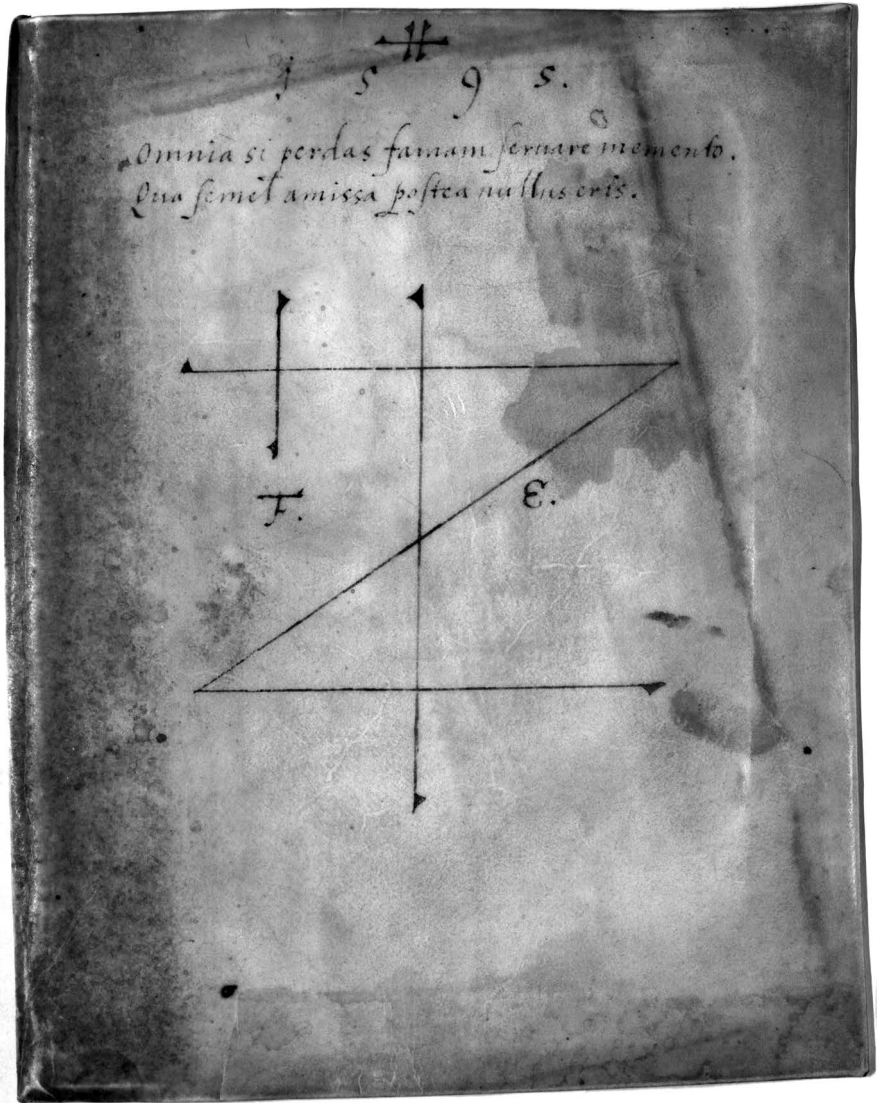 1 5 9 5.
Omnia si perdas famam seruare memento.
Qua semel amissa postea nullus eris.
F.
E.